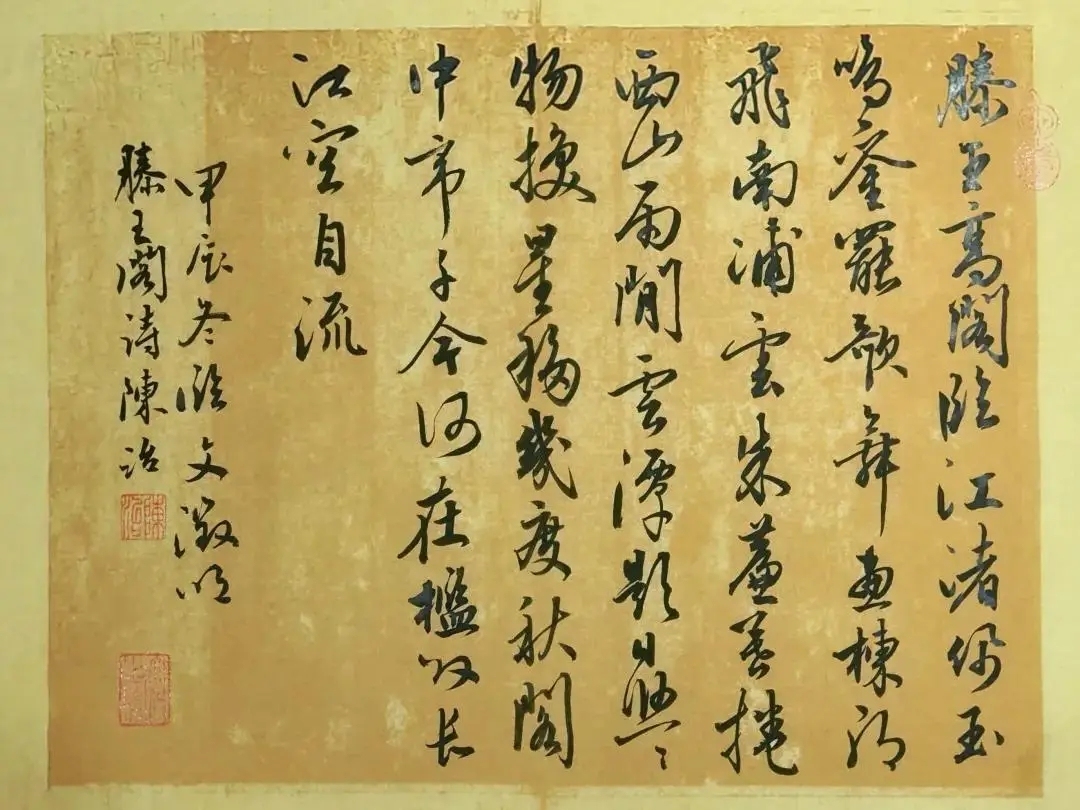 滕王高閣臨江渚佩玉
鳴鑾罷歌舞畫棟朝
飛南浦雲朱簾暮捲
西山雨閒雲潭影日悠〻
物換星移幾度秋閣
中帝子今何在檻外長
江空自流
甲辰冬臨文徵明
滕王閣詩陳治